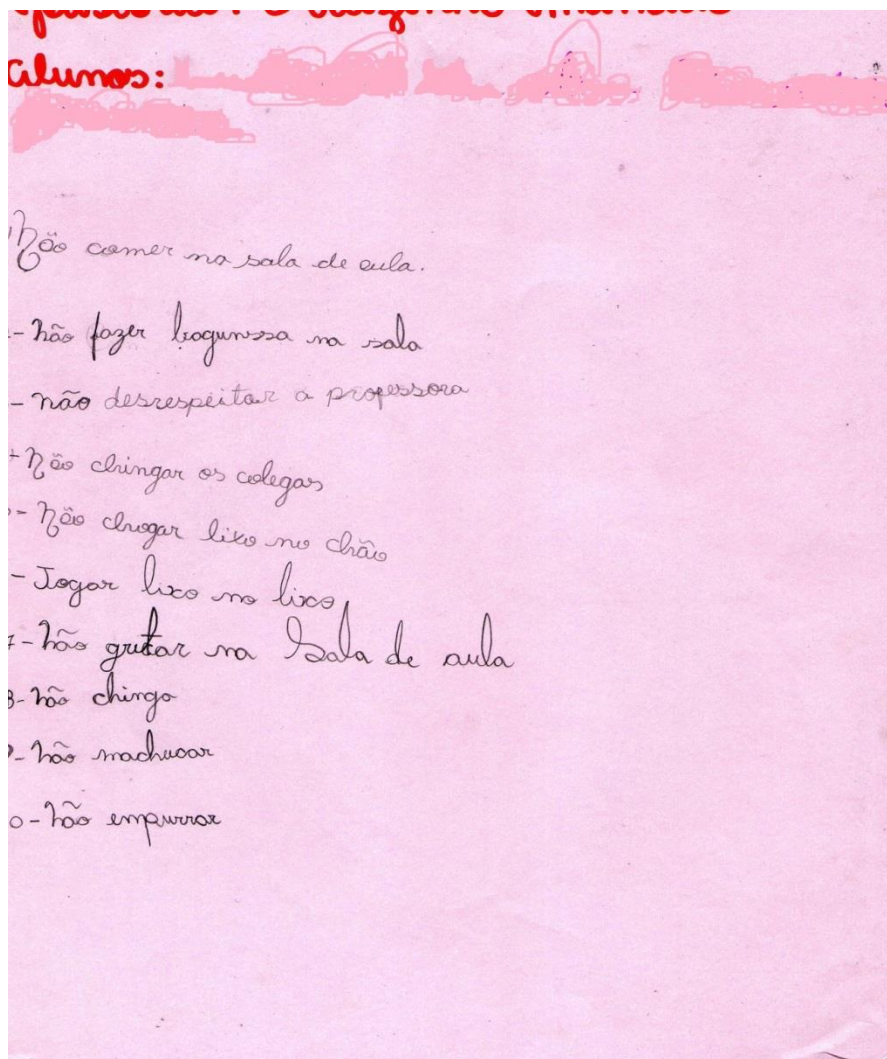 Alunos:
Não comer na sala de aula.
- não fazer bagunssa na sala
- não desrespeitar a professora
- Não chingar os colegas
- Não chogar lixo no chão
- Jogar lixo no lixo
7-não gritar na Sala de aula
8-não chingo
9-não machucar
0-não empurrar